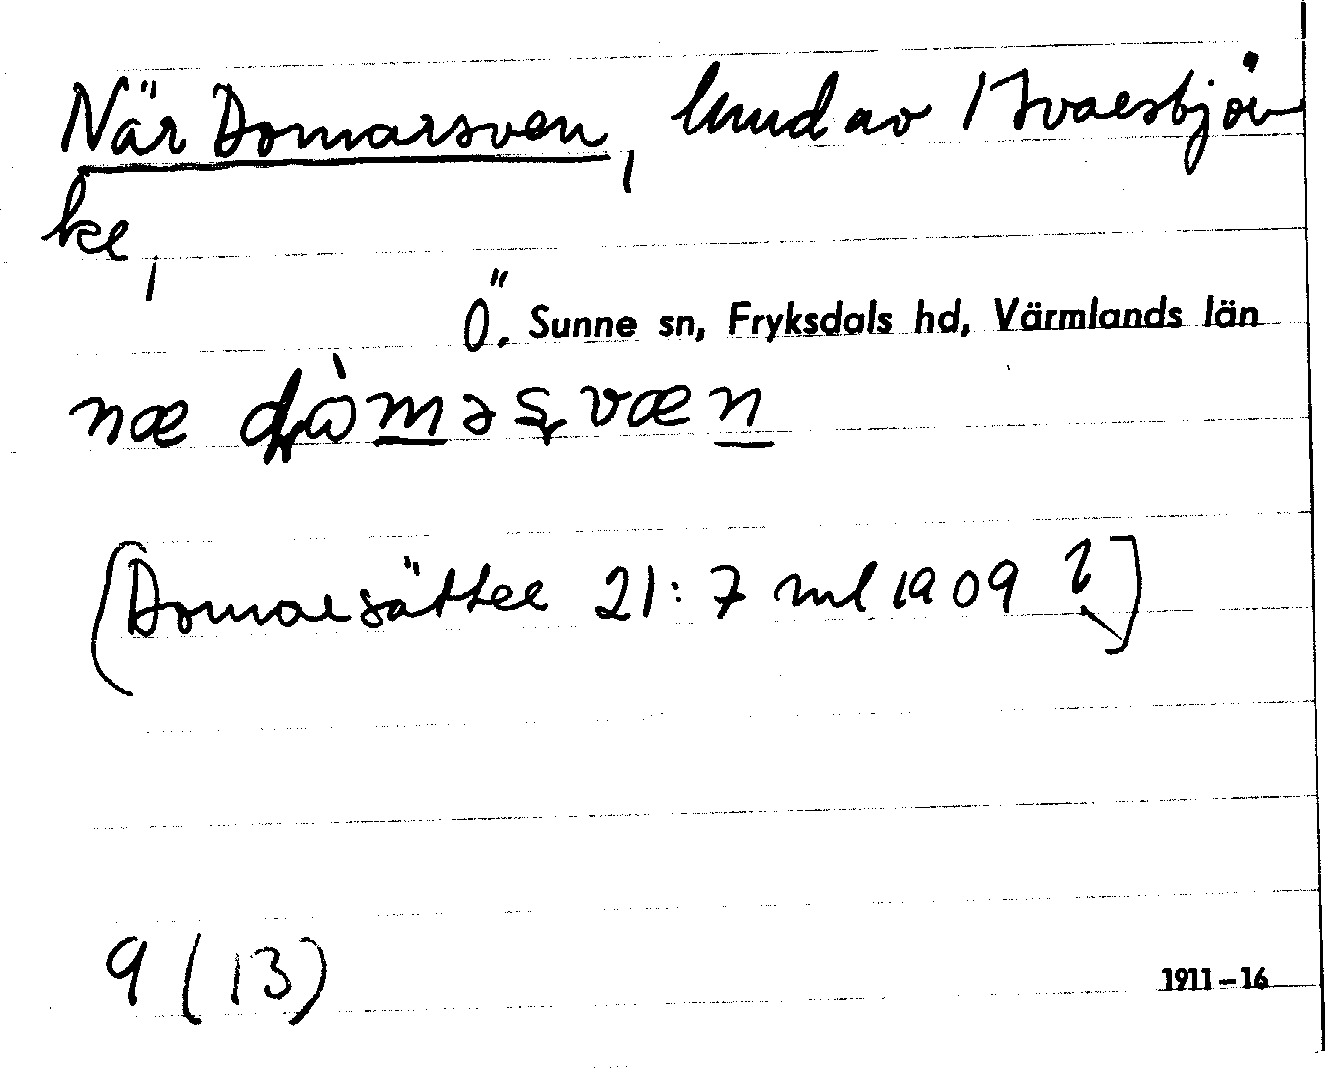 När Domarsven, lund av 1 Ivarsbjör
ke,
Ö. Sunne sn, Fryksdals hd, Värmlands län
næ dɷ̀məʂvæn
(Domarsätter 21:7 ml 1909 ?]
9 (13)
1911–16